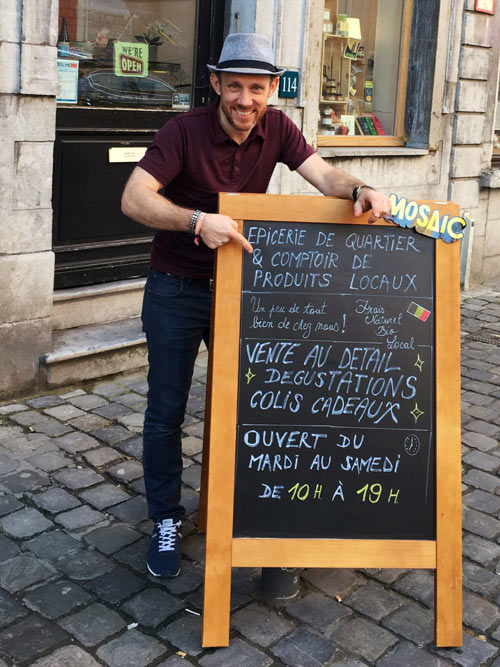 WE'RE
OPEN
114
MOSAIC
EPICERIE DE QUARTIER
& COMPTOIR DE
PRODUITS LOCAUX
Un peu de tout
bien de chez nous !
Frais
Naturel
Bio
Local
VENTE AU DETAIL
DEGUSTATIONS
COLIS CADEAUX
OUVERT DU
MARDI AU SAMEDI
DE 10H. À 19H.